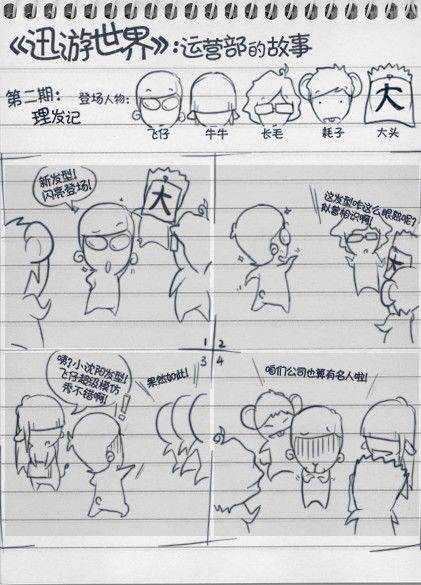 《迅游世界》:运营部的故事
第二期:
理发记
登场人物:
大
飞仔
牛牛
长毛
耗子
大头
新发型!
闪亮登场!
大
1
这发型咋这么眼熟呢?
似曾相识啊!
大
2
咦?小沈阳发型!
飞仔超级模仿
秀不错啊!
果然如此!
3
咱们公司也算有名人啦!
4